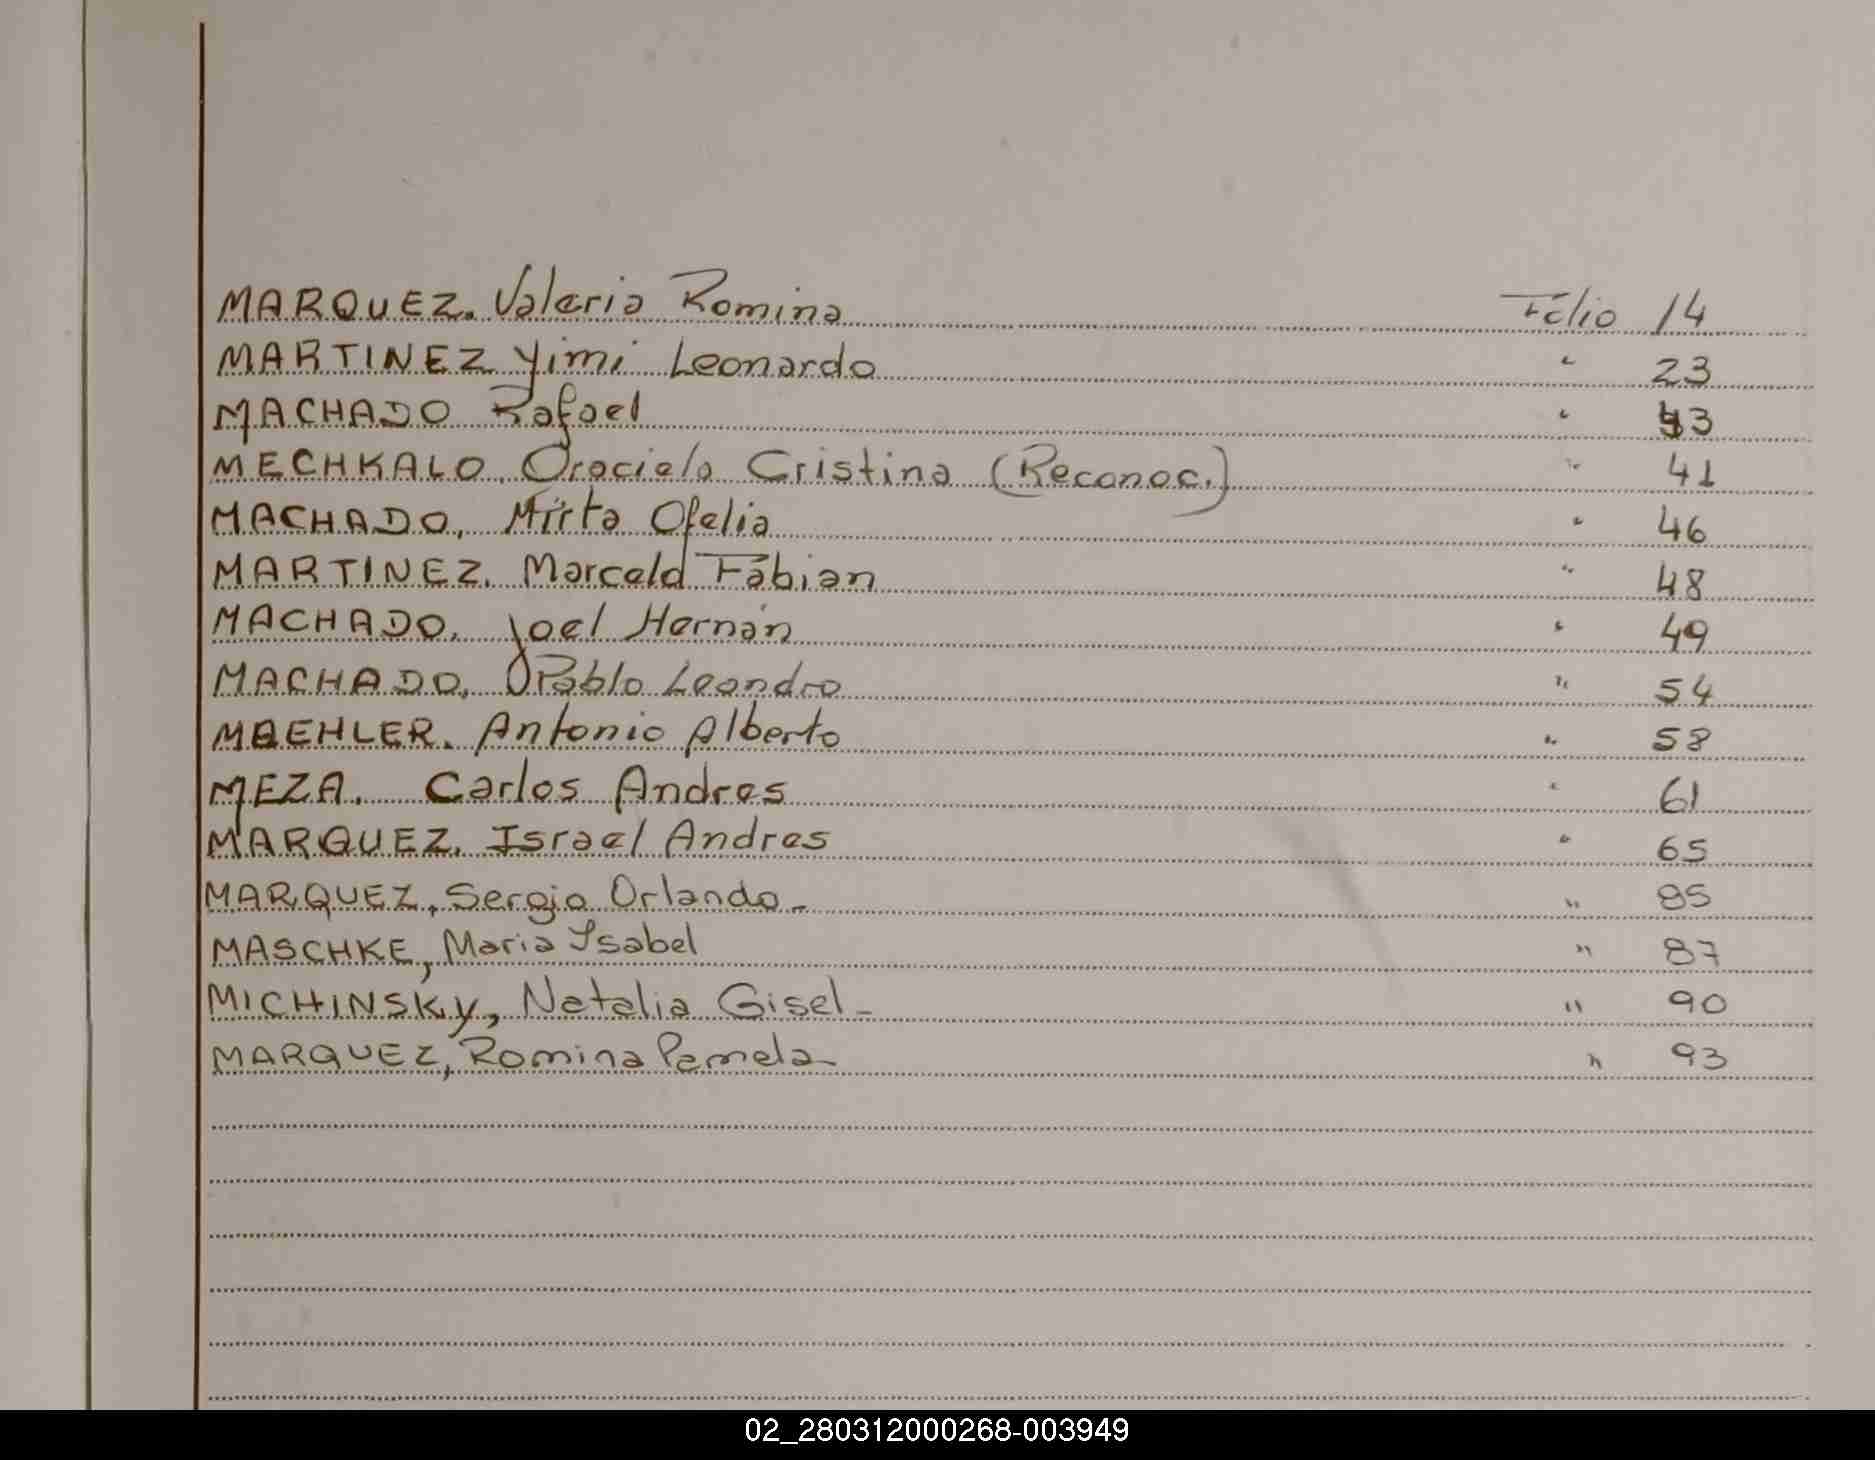 MARQUEZ. Valeria Romina Folio 14
MARTINEZ Yimi Leonardo " 23
MACHADO Rafael " 43
MECHKALO, Oraciela Cristina (Reconoc.) " 41
MACHADO, Mirta Ofelia " 46
MARTINEZ. Marcelo Fabian " 48
MACHADO. Joel Hernán " 49
MACHADO, Pablo Leandro " 54
MAEHLER. Antonio Alberto " 58
MEZA. Carlos Andres " 61
MARQUEZ. Israel Andres " 65
MARQUEZ, Sergio Orlando- " 85
MASCHKE, Maria Ysabel " 87
MICHINSKY, Natalia Gisel- " 90
MARQUEZ, Romina Pamela- " 93
02_280312000268-003949